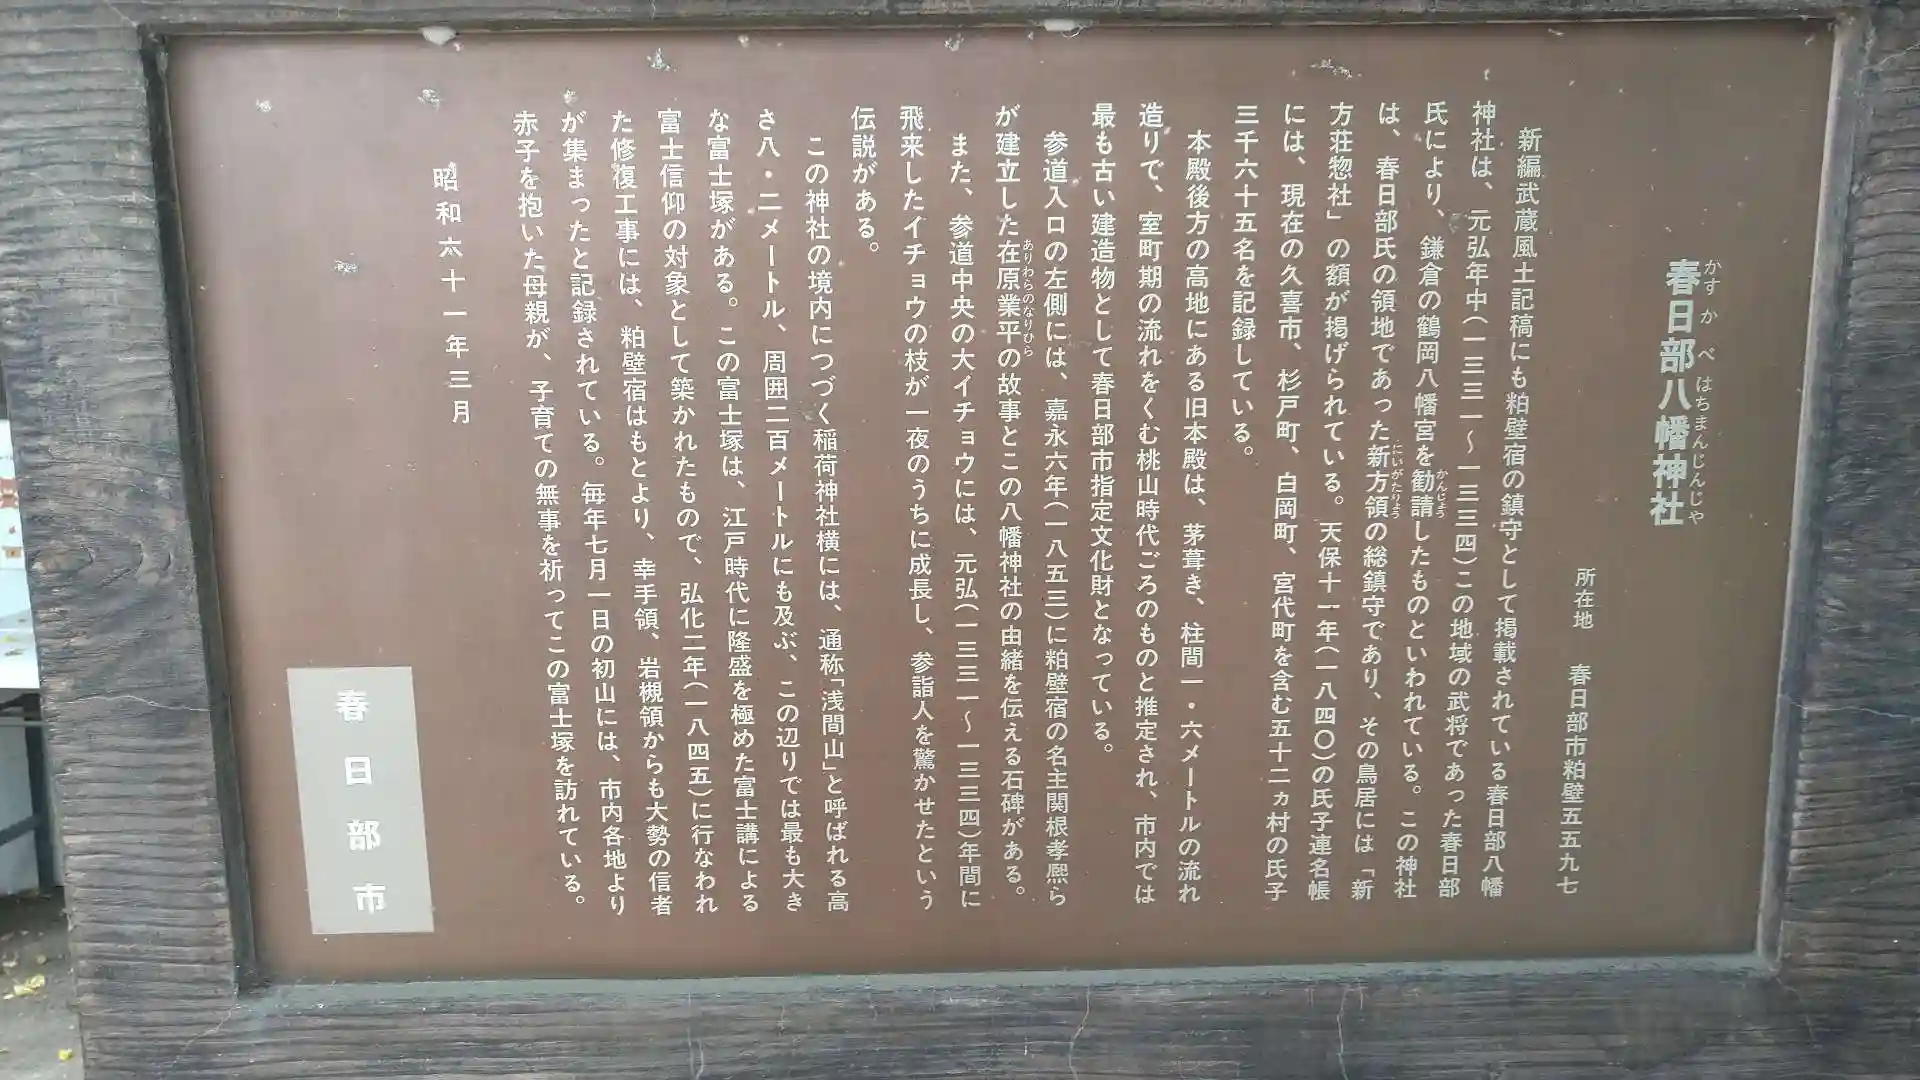 春日部八幡神社
かすかべはちまんじんじゃ
所在地 春日部市粕壁五五九七
新編武蔵風土記稿にも粕壁宿の鎮守として掲載されている春日部八幡
神社は、元弘年中(一三三一～一三三四)この地域の武将であった春日部
氏により、鎌倉の鶴岡八幡宮を勧請したものといわれている。この神社
かんじょう
は、春日部氏の領地であった新方領の総鎮守であり、その鳥居には「新
にいがたりょう
方荘惣社」の額が掲げられている。天保十一年(一八四〇)の氏子連名帳
には、現在の久喜市、杉戸町、白岡町、宮代町を含む五十二ヵ村の氏子
三千六十五名を記録している。
本殿後方の高地にある旧本殿は、茅葺き、柱間一・六メートルの流れ
造りで、室町期の流れをくむ桃山時代ごろのものと推定され、市内では
最も古い建造物として春日部市指定文化財となっている。
参道入口の左側には、嘉永六年(一八五三)に粕壁宿の名主関根孝熙ら
が建立した在原業平の故事とこの八幡神社の由緒を伝える石碑がある。
ありわらのなりひら
また、参道中央の大イチョウには、元弘(一三三一～一三三四)年間に
飛来したイチョウの枝が一夜のうちに成長し、参詣人を驚かせたという
伝説がある。
この神社の境内につづく稲荷神社横には、通称「浅間山」と呼ばれる高
さ八・二メートル、周囲二百メートルにも及ぶ、この辺りでは最も大き
な富士塚がある。この富士塚は、江戸時代に隆盛を極めた富士講による
富士信仰の対象として築かれたもので、弘化二年(一八四五)に行なわれ
た修復工事には、粕壁宿はもとより、幸手領、岩槻領からも大勢の信者
が集まったと記録されている。毎年七月一日の初山には、市内各地より
赤子を抱いた母親が、子育ての無事を祈ってこの富士塚を訪れている。
昭和六十一年三月
春日部市